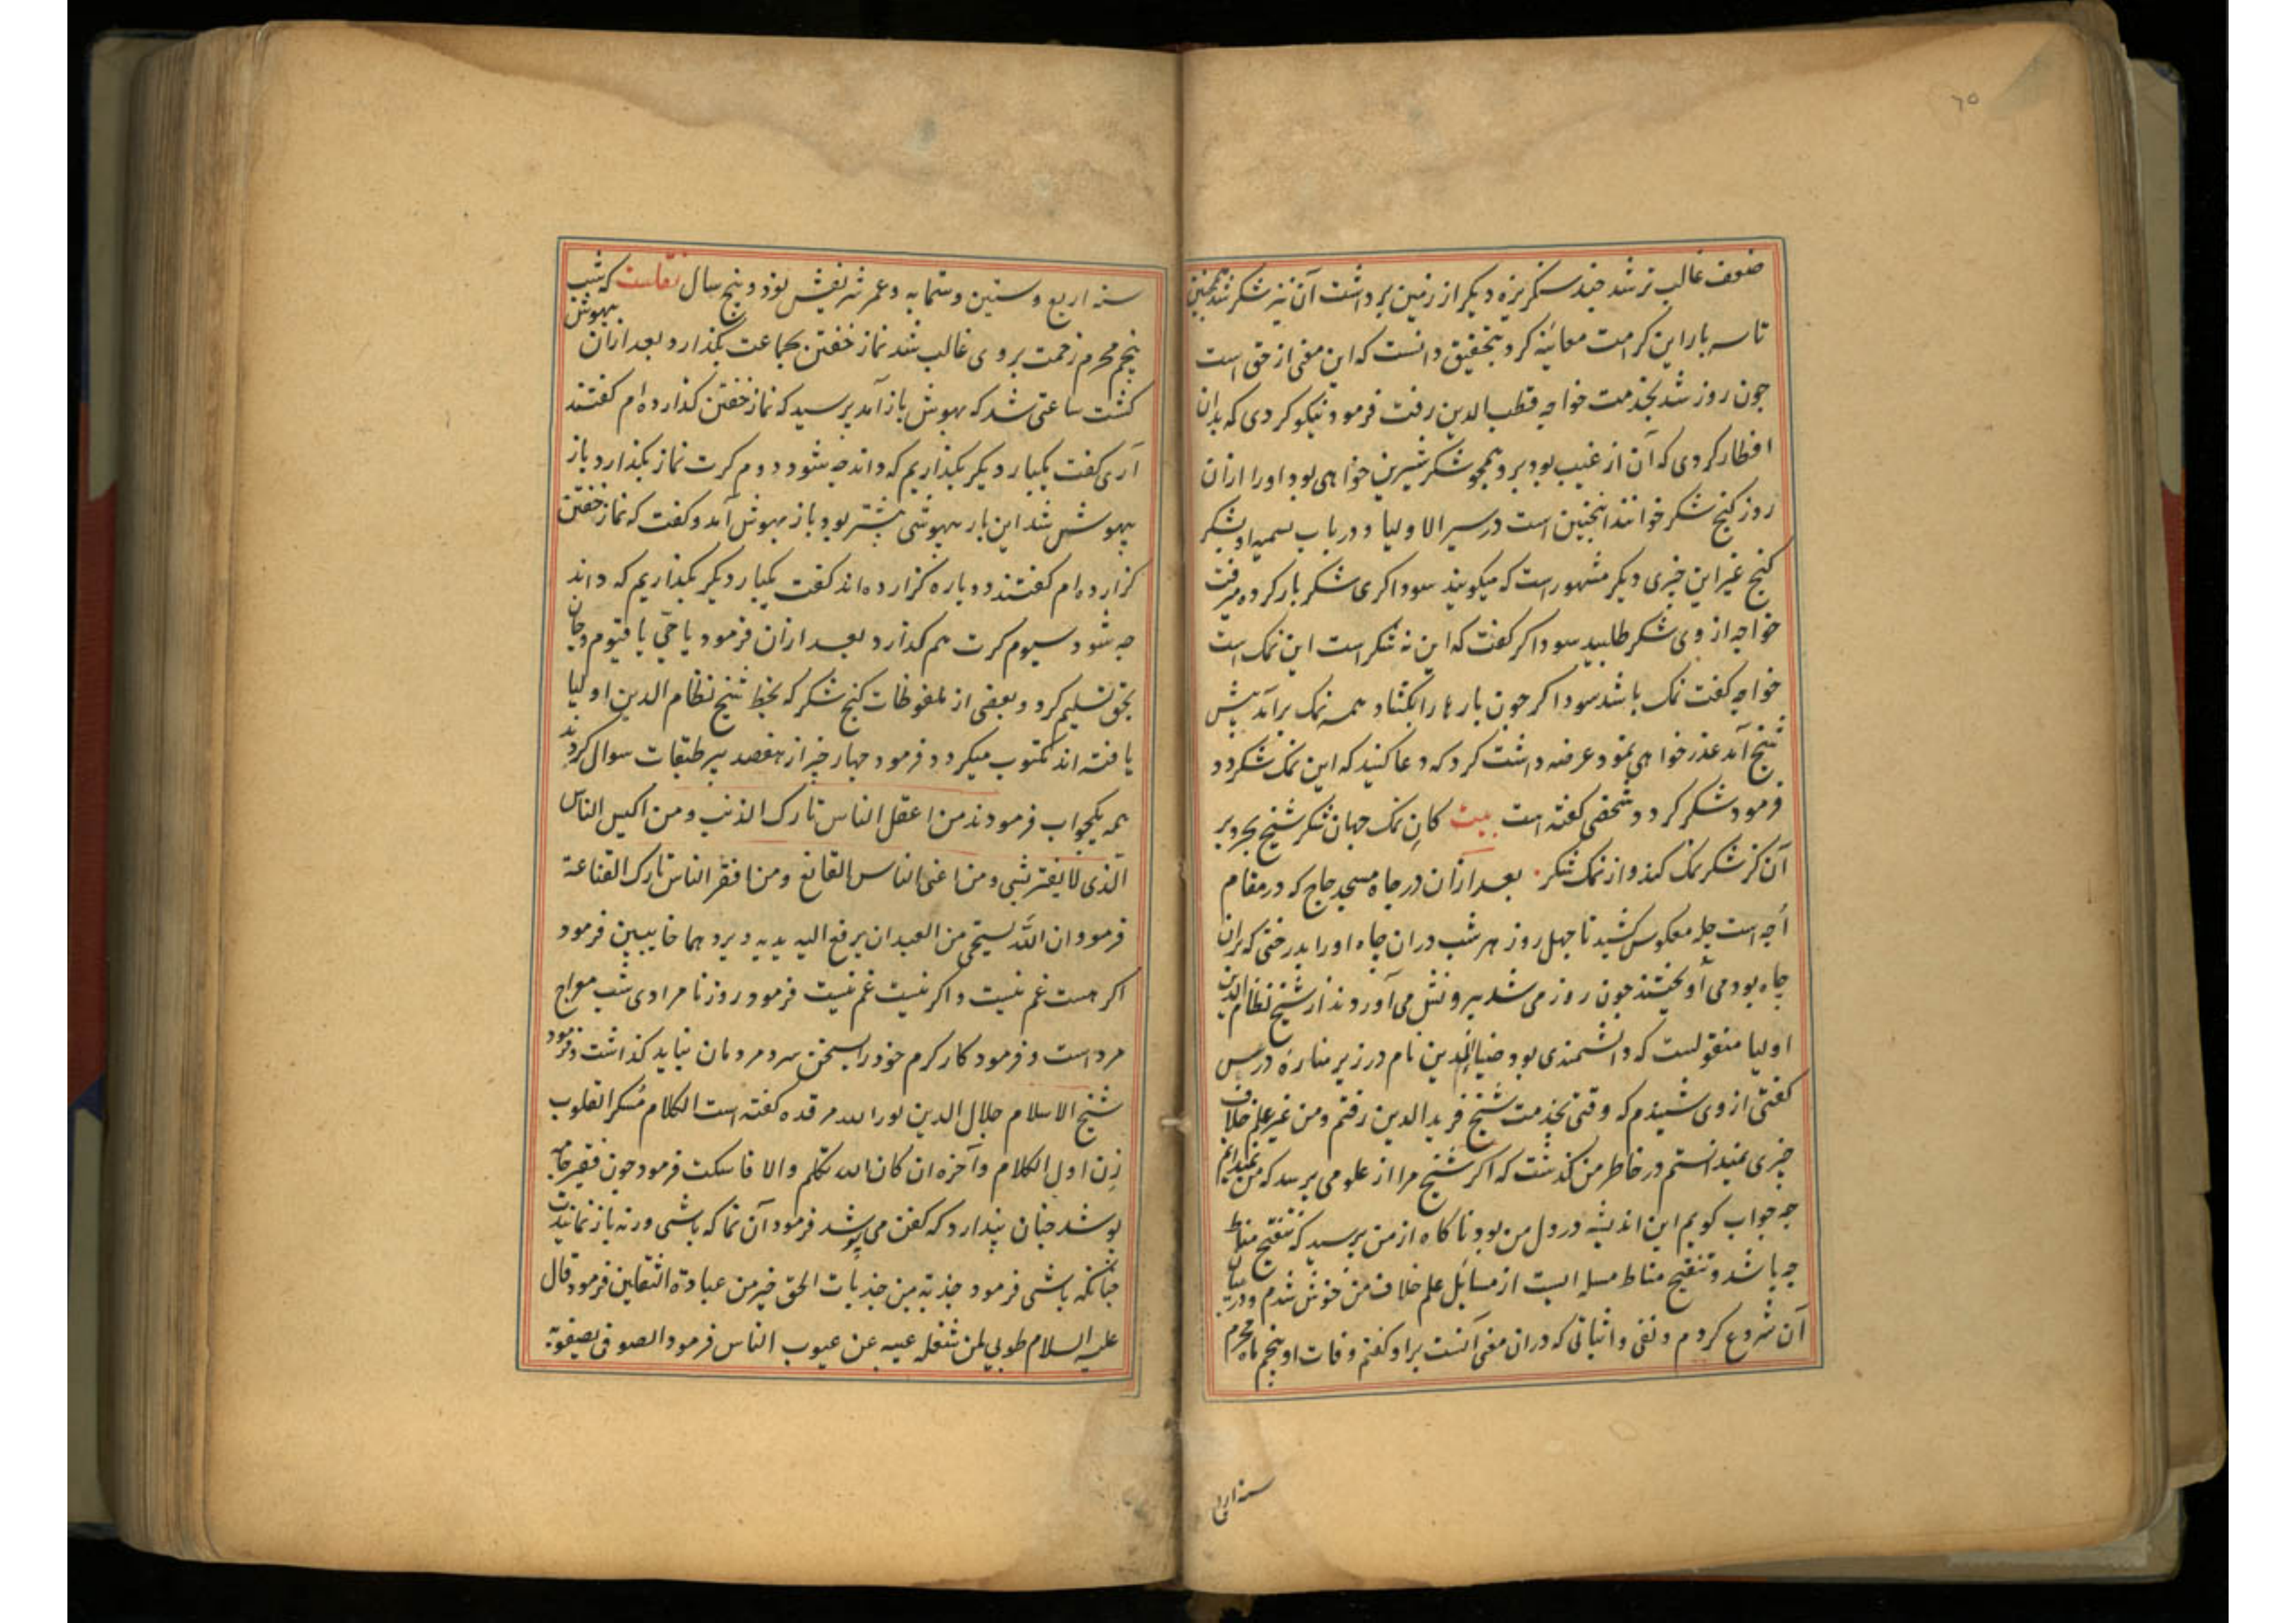 ۶۵
ضعف غالب تر شد چند سنگریزه دیکر از زمین برداشت آن نیز شکر شد همچنین
تا سه بار این کرامت معاینه کرد و بتحقیق دانست که این معنی از حق است
چون روز شد بخدمت خواجه قطب الدین رفت فرمود نیکو کردی که بدان
افطار کردی که آن از غیب بود برو همچو شکر شیرین خواهی بود او را ازان
روز کنج شکر خوانند اینچنین است در سیر الاولیا و در باب تسمیه او بشکر
کنج غیر این خبری دیکر مشهور است که میکویند سوداکری شکر بار کرده میرفت
خواجه از وی شکر طلبید سوداکر کفت که این نه شکر است این نمک است
خواجه کفت نمک باشد سوداکر چون بارها را بکشاد همه نمک برآمد پیش
شیخ آمد عذر خواهی نمود عرضه داشت کرد که دعا کنید که این نمک شکر کردد
فرمود شکر کردد شخصی کفته است بیت کان نمک جهان شکر شیخ بحر و بر
آن کز شکر نمک کند و از نمک شکر بعد ازان در چاه مسجد حاج که در مقام
اُچه است چله معکوس کشید تا چهل روز هر شب در ان چاه او را بدرختی که بران
چاه بود می آویختند چون روز می شد بیرونش می آوردند از شیخ نظام الدین
اولیا منقولست که دانشمندی بود ضیاء الدین نام در زیر مناره درس
کفتی از وی شنیدم که وقتی بخدمت شیخ فرید الدین رفتم و من غیر علم خلاف
چیزی نمیدانستم در خاطر من کذشت که اکر شیخ مرا از علومی پرسد که من نمیدانم
چه جواب کویم این اندیشه در دل من بود ناکاه از من پرسید که تنقیح مناط
چه باشد و تنقیح مناط مسله ایست از مسائل علم خلاف من خوش شدم و در بیان
آن شروع کردم و نفی و اثباتی که دران معنی است براو کفتم وفات او پنجم ماه محرم
سنه اربع
سنه اربع و ستین و ستمایه و عمر شریفش نود و پنج سال نقلست که شب
پنجم محرم زحمت بر وی غالب شد نماز خفتن بجماعت بکذارد و بعد ازان بیهوش
کشت ساعتی شد که بهوش باز آمد پرسید که نماز خفتن کذارده ام کفتند
آری کفت یکبار دیکر بکذاریم که داند چه شود دوم کرت نماز بکذارد باز
بیهوش شد این بار بیهوشی بیشتر بود باز بهوش آمد و کفت که نماز خفتن
کزارده ام کفتند دوباره کزارده اند کفت یکبار دیکر بکذاریم که داند
چه شود سیوم کرت هم کذارد بعد ازان فرمود یا حی یا قیوم و جان
بحق تسلیم کرد و بعضی از ملفوظات کنج شکر که بخط شیخ نظام الدین اولیا
یافته اند مکتوب میکردد فرمود چهار چیز از هفصد پیر طبقات سوال کردند
همه یکجواب فرمودند من اعقل الناس تارک الذنب و من اکیس الناس
الذی لا یغتر بشی و من اغنی الناس القانع و من افقر الناس تارک القناعة
فرمود ان الله یستحیی من العبد ان یرفع الیه یدیه و یردهما خایبین فرمود
اکر هست غم نیست و اکر نیست غم نیست فرمود روز نامرادی شب معراج
مرد است و فرمود کار کرم خود را بسخن سرد مردمان نباید کذاشت و فرمود
شیخ الاسلام جلال الدین نور الله مرقده کفته است الکلام مُسکر القلوب
زِن اول الکلام و آخره ان کان لله تکلم و الا فاسکت فرمود چون فقیر جامه
پوشد چنان پندارد که کفن می پوشد فرمود آن نما که باشی ورنه باز نمایندت
چنانکه باشی فرمود جذبة من جذبات الحق خیر من عبادة الثقلین فرمود قال
علیه السلام طوبی لمن شغله عیبه عن عیوب الناس فرمود الصوفی یصفو به